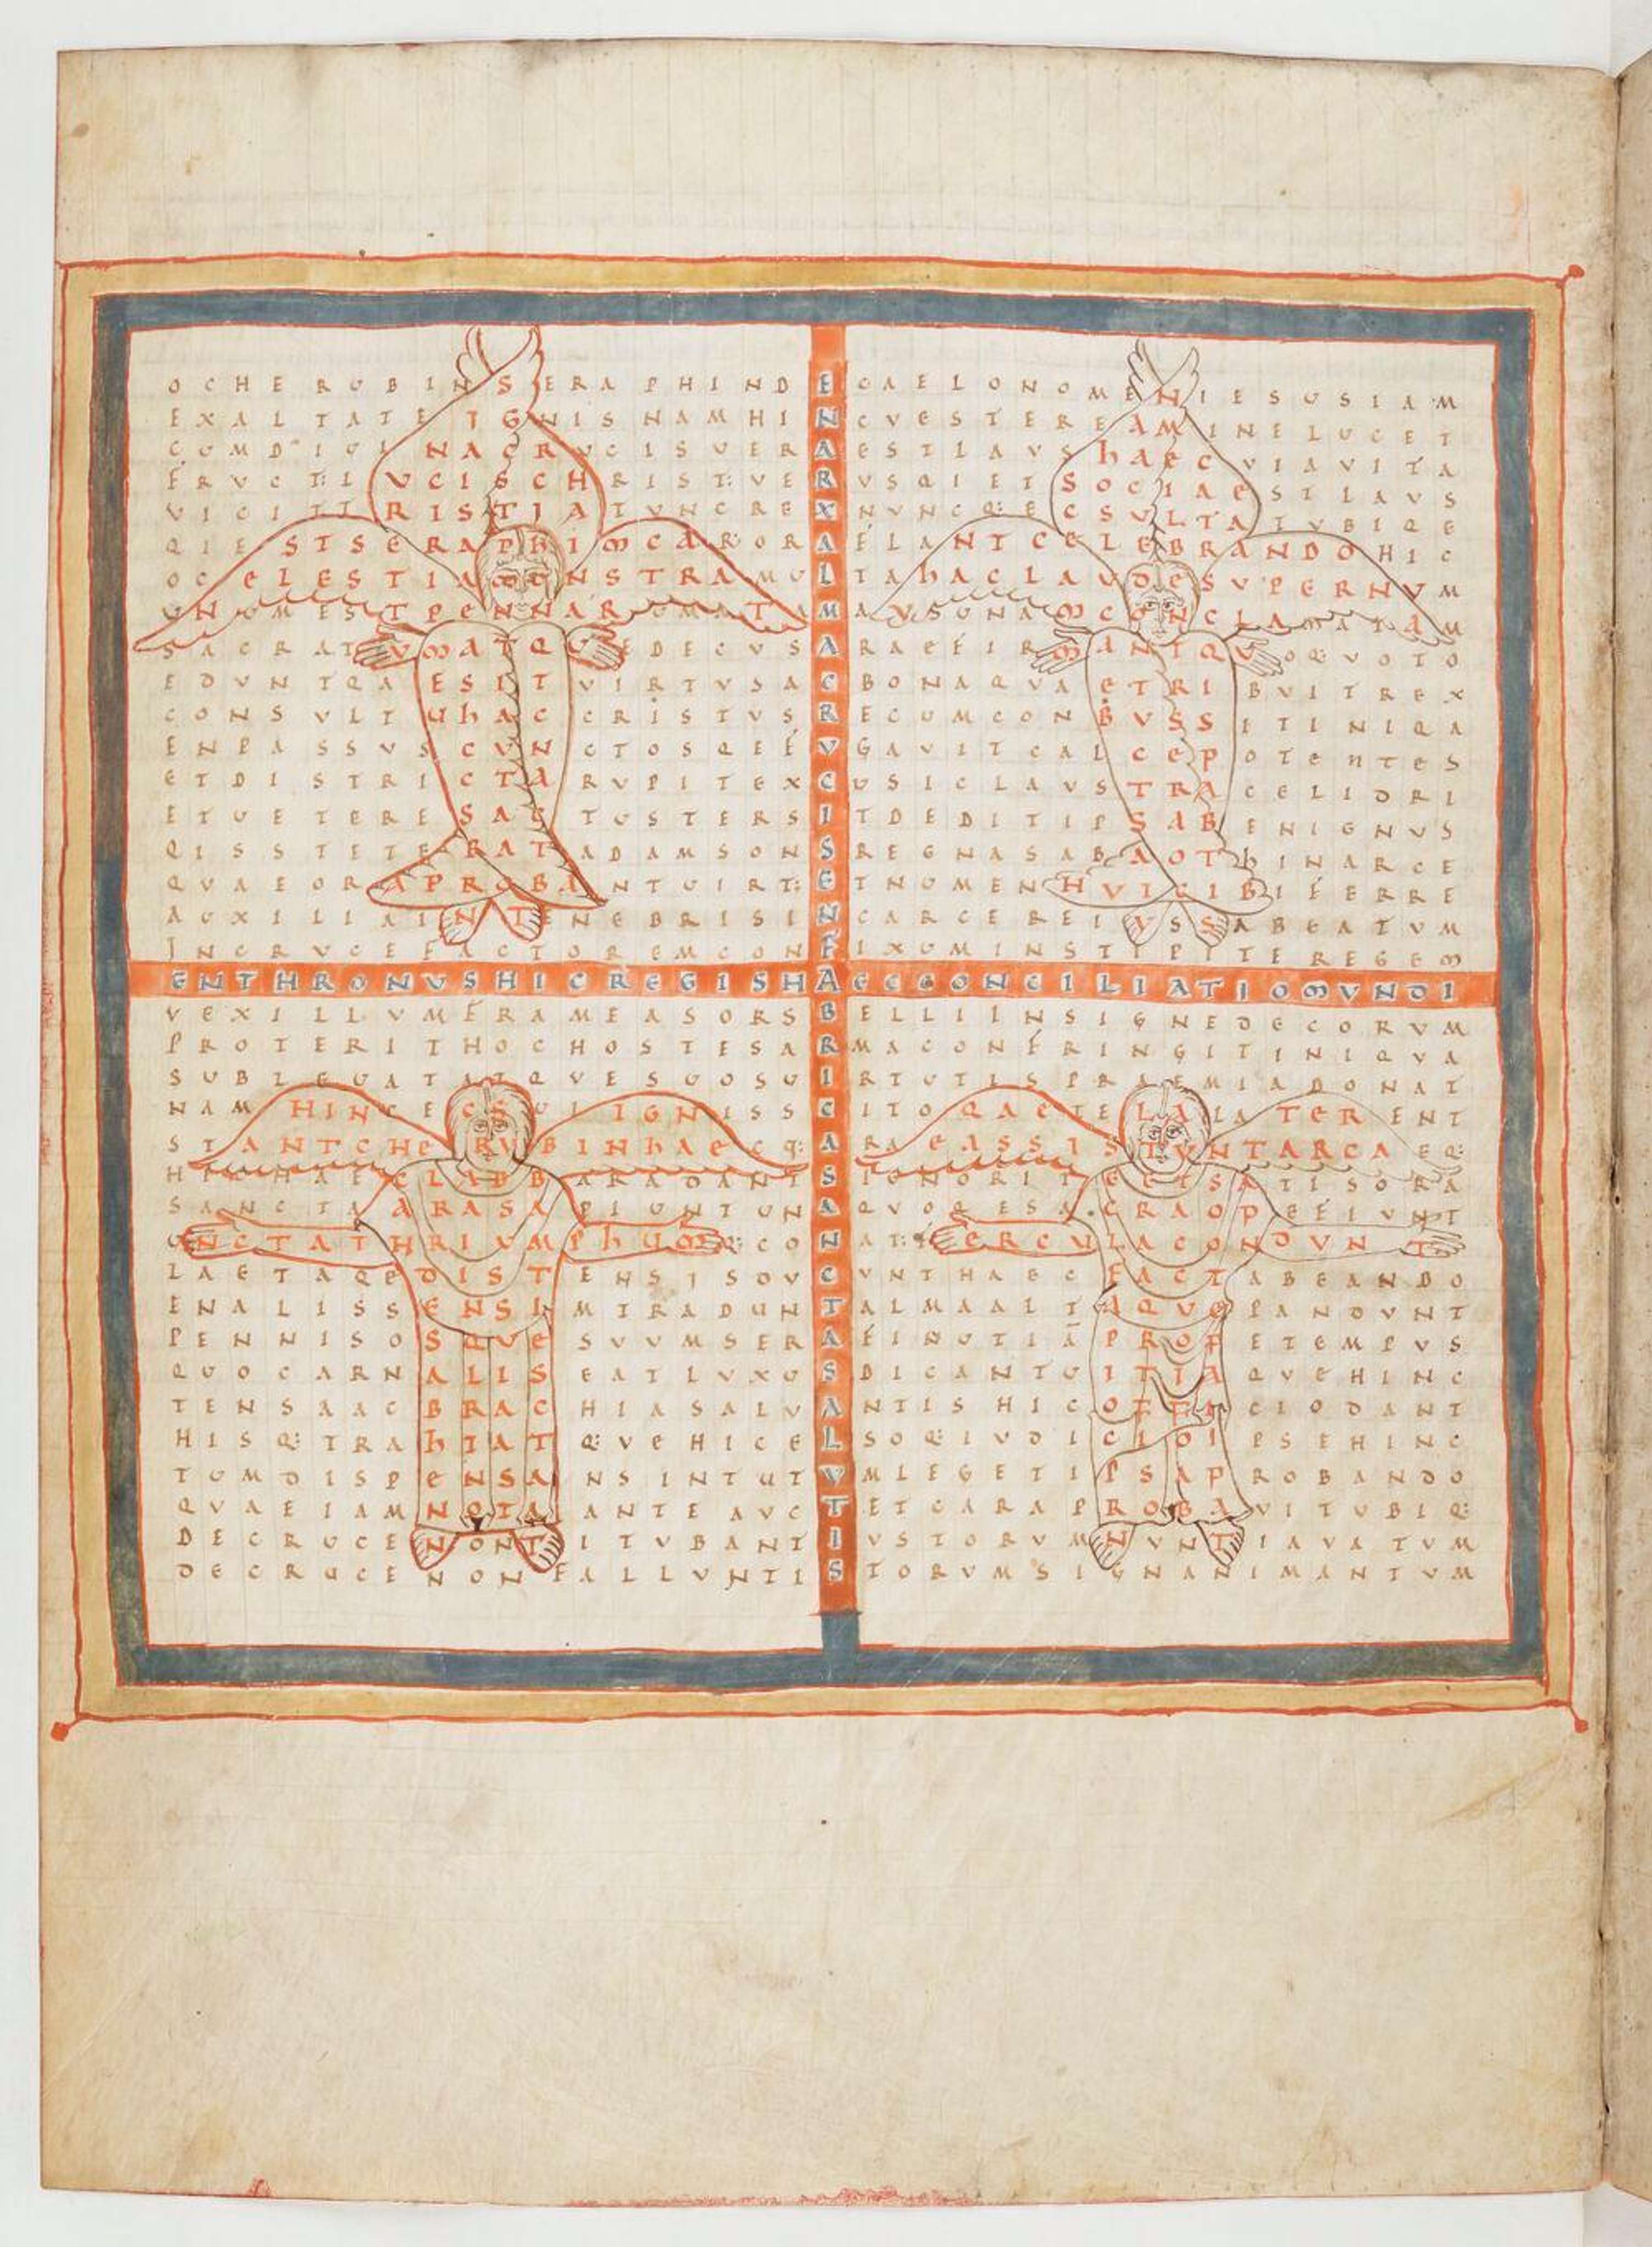 OCHERUBINSERAPHINDECAELONOMENIESUSIAM
EXALTATEIGNISNAMHINCVESTEREAMINELUCET
CUMDIGINACRUCISUERAESTLAVShAECVIAVITA
FRVCT:IVCISCHRIST:VERVSQIETSOCIAESTLAVS
VICITTRISTIATVNCREXNVNCQ:ECSVLTATVBIQE
QIESTSERAPHIMCAR:ORAFLANTCELEBRANDOHIC
OCELESTIAMONSTRAMULTAhACLAUDESVPERNVM
UNUMESTPENNARUMATAMAVSUNAMCONCLAMATAM
SACRATVMATQUEDECVSARAEFIRMANTQVOQ:VOTO
EDVNTQAESITVIRTVSACBONAQVAETRIBVITREX
CONSVLTUhACCRISTVSRECUMCONBVSSITINIQA
ENPASSVSCVNCTOSQEFVGAVITCALCEPOTENTES
ETDISTRICTARVPITEXCUSICLAVSTRACELIDRI
ETUETERESAETUSTERSITDEDITIPSABENIGNVS
QISSTETERATADAMSONSREGNASABAOThINARCE
QVAEORAPROBANTUIRT:ETNUMENHVICIBIFERRE
AUXILIAINTENEBRISINCARCEREIVSSABEATVM
INCRVCEFACTOREMCONFIXUMINSTIPITEREGEM
ENTHRONVSHICREGISHAECCONCILIATIOMVNDI
VEXILLVMFRAMEASORSBELLIINSIGNEDECORVM
PROTERITHOCHOSTESARMACONFRINGITINIQVA
SUBLEUATATQVESUOSUIRTUTISPRAEMIADONAT
NAMHINCECSUIIGNISSCITOQAETELALATERENT
STANTCHERVBINhAECQ:ARAEASSISTVNTARCAEQ:
HICHAECLABBARADANTSIGNORITEGEISATISORA
SANCTAARASAPIUNTUNAQVOQESACRAOPEFIVNT
UNCTATHRIVMPhUMQ:CONAT:FERCULACONDVNT
LAETAQEDISTENSISOVCVNTHAECFACTABEANDO
ENALISSENSIMTRADUNTALMAALTAQVEPANDVNT
PENNISOSQVESVVMSERAFINUTIAPROFETEMPVS
QUOCARNALISEATLVXUSDICANTUITIAQVEHINC
TENSAACBRACHIASALVANTISHICOTTIACIODANT
HISQ:TRAhIATQ:VEHICELSOQ:IVDICIOIPSEHINC
TUMDISPENSANSINTUTVMLEGETIPSAPROBANDO
QVAEIAMNOTAANTEAVCTETCARAPROBAVITVBIQ:
DECRUCENONTITVBANTIVSTORVMNVNTIAVATVM
DECRUCENONFALLVNTISTORVMSIGNANIMANTVM